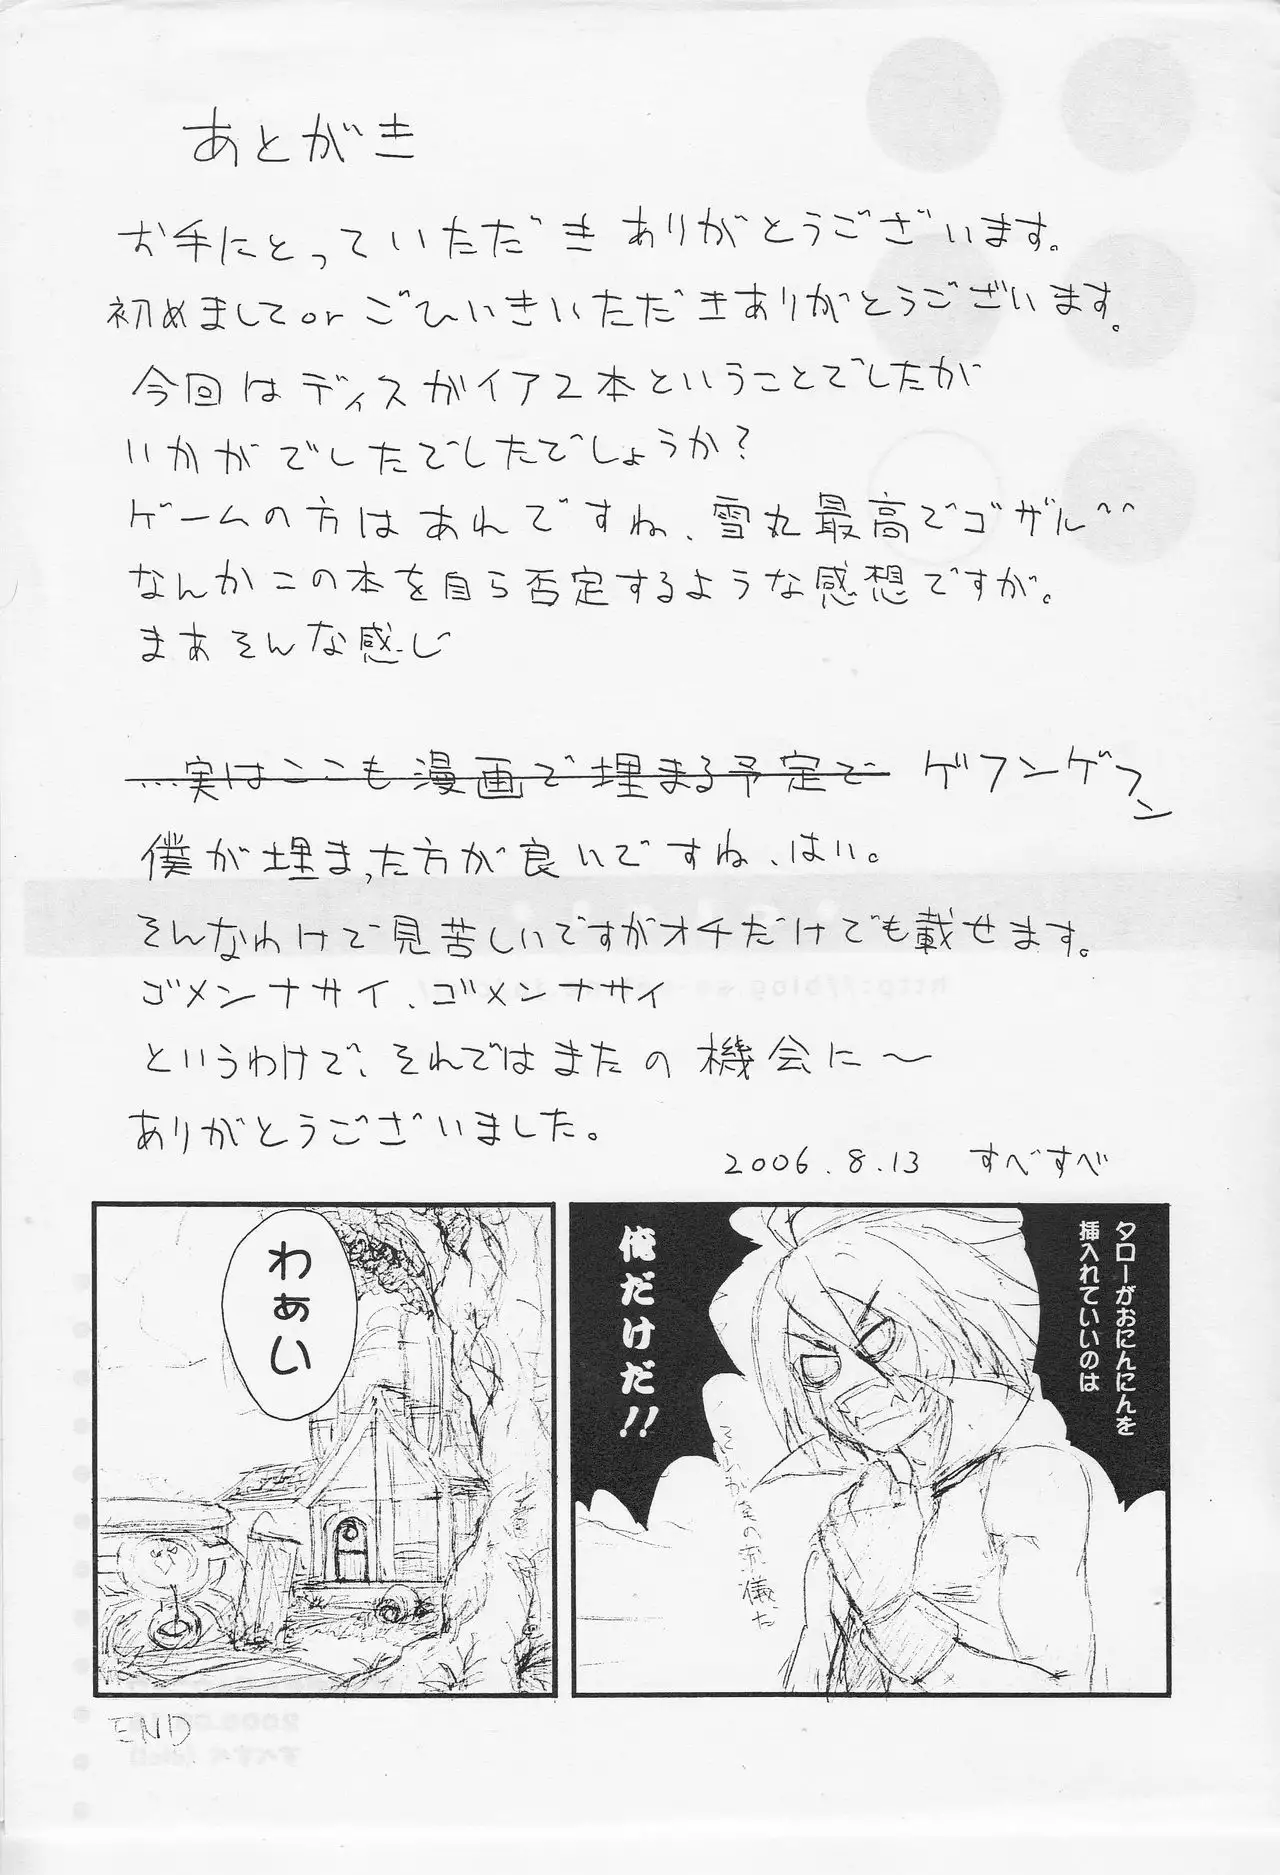 あとがき
お手にとっていただきありがとうございます。
初めましてorごひいきいただきありがとうございます。
今回はディスガイア2本ということでしたが
いかがでしたでしたでしょうか?
ゲームの方はあれですね、雪丸最高でゴザル^^
なんかこの本を自ら否定するような感想ですが。
まあそんな感じ
…実はここも漫画で埋まる予定で ゲフンゲフン
僕が埋まった方が良いですね、はい。
そんなわけで見苦しいですがオチだけでも載せます。
ゴメンナサイ、ゴメンナサイ
というわけで、それではまたの機会に〜
ありがとうございました。
2006.8.13 すべすべ
タローがおにんにんを
挿入れていいのは
俺だけだ!!
の流儀だ
わぁい
END